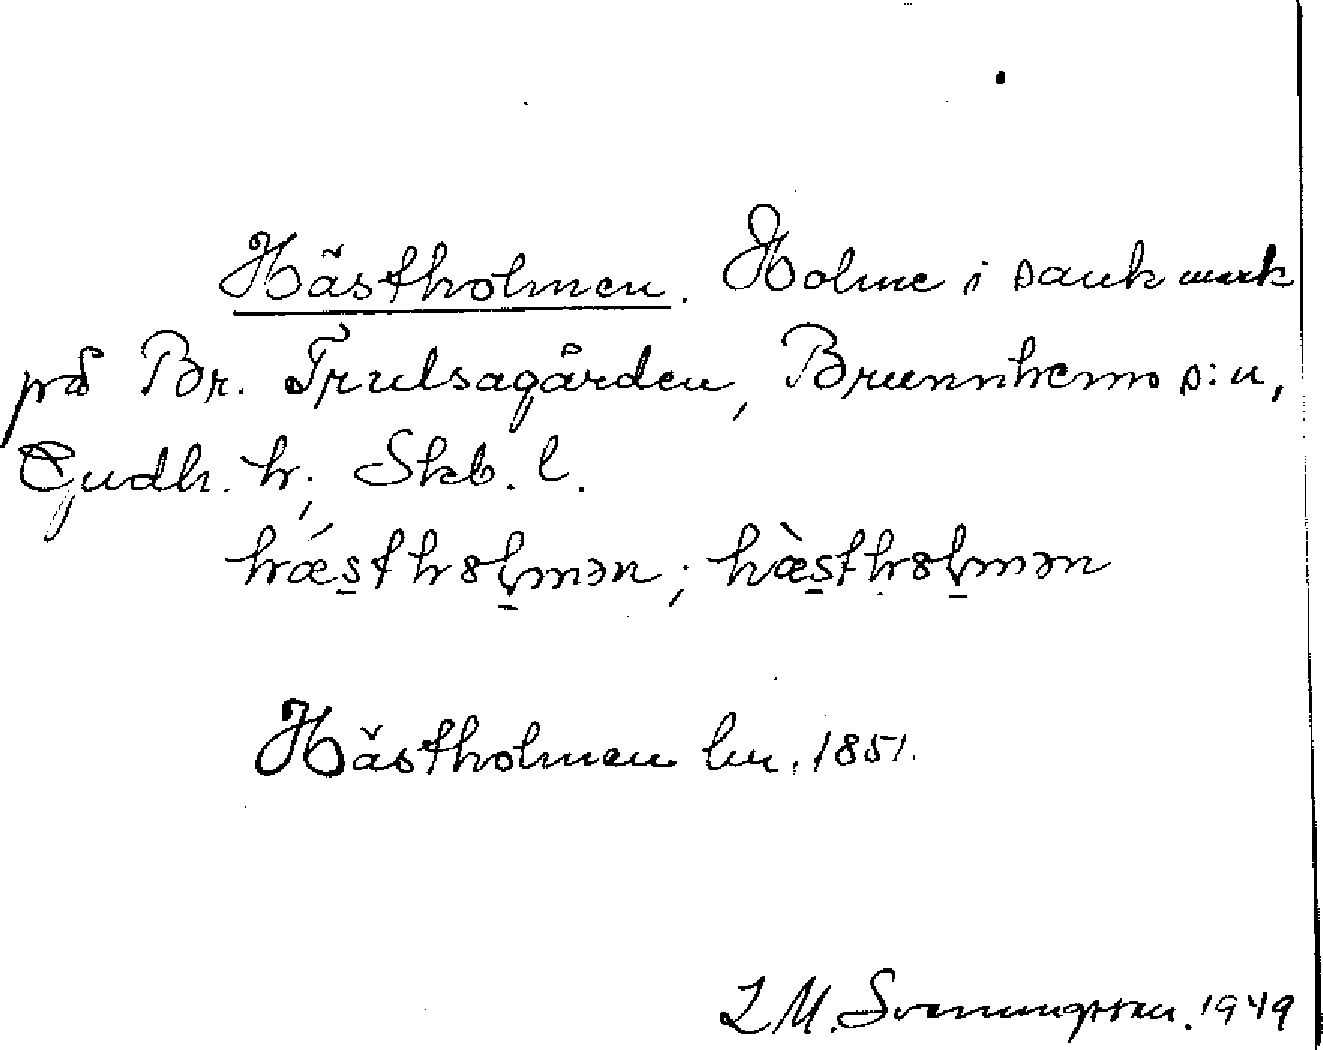 Hästholmen. Holme i sank mark
på Br. Trulsagården, Brunnhems s:n,
Gudh. h., Skb. l.
hǽstho̵l̥mən; hæ̀stho̵l̥mən
Hästholmen lm. 1851.
L M. Svenungsson. 1949